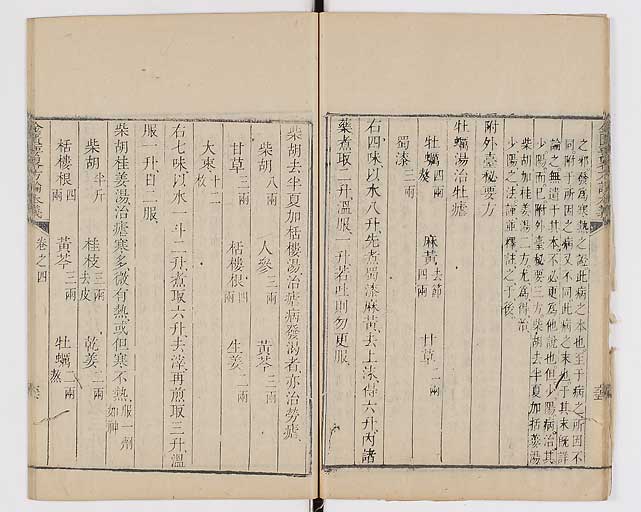 之邪發爲寒熱之證此病之本也至于病之所因不
同附于所因之病又不同此病之末也于其末既詳
論之無遺于其本不必更爲他說也但少陽病治其
少陽而已附外臺秘要三方柴胡去半夏加括蔞湯
柴胡加桂姜湯二方尤爲得治
少陽之法謹並釋註之于後
附外臺秘要方
牡蠣湯治牡瘧
牡蠣四兩熬 麻黃去節四兩 甘草二兩
蜀漆三兩
右四味以水八升先煮蜀漆麻黃去上沫得六升內諸
藥煮取二升溫服一升若吐則勿更服
柴胡去半夏加栝樓湯治瘧病發渴者亦治勞瘧
柴胡八兩 人參三兩 黃芩三兩
甘草三兩 栝樓根四兩 生姜二兩
大棗十二枚
右七味以水一斗二升煮取六升去滓再煎取三升溫
服一升日二服
柴胡桂姜湯治瘧寒多微有熱或但寒不熱服一劑如神
柴胡半斤 桂枝三兩去皮 乾姜二兩
栝樓根四兩 黃芩三兩 牡蠣二兩熬
卷之四